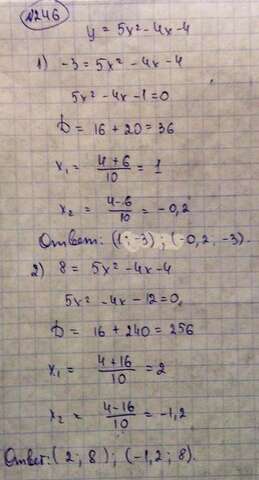 №246
y = 5x² - 4x - 4
1) -3 = 5x² - 4x - 4
5x² - 4x - 1 = 0
D = 16 + 20 = 36
x₁ = (4+6)/10 = 1
x₂ = (4-6)/10 = -0,2
Ответ: (1; -3); (-0,2; -3).
2) 8 = 5x² - 4x - 4
5x² - 4x - 12 = 0
D = 16 + 240 = 256
x₁ = (4+16)/10 = 2
x₂ = (4-16)/10 = -1,2
Ответ: (2; 8); (-1,2; 8).